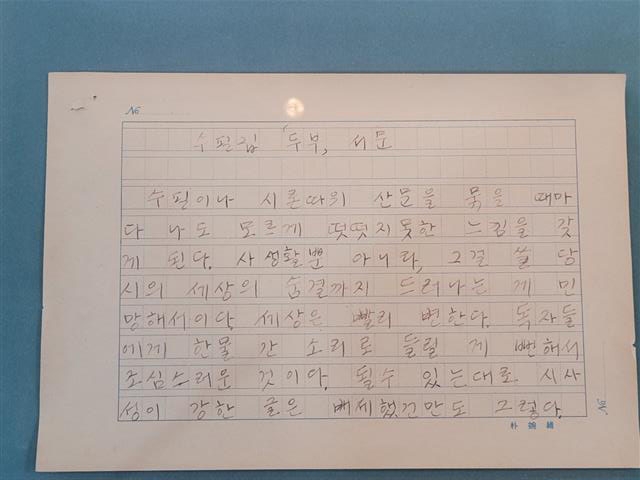 No
수필집 '두부, 서문
수필이나 시론따위 산문을 묶을 때마
다 나도 모르게 떳떳지못한 느낌을 갖
게 된다. 사생활뿐 아니라, 그걸 쓸 당
시의 세상의 숨결까지 드러나는 게 민
망해서이다. 세상은 빨리 변한다. 독자들
에게 한물 간 소리로 들릴 게 뻔해서
조심스러운 것이다. 될수 있는대로 시사
성이 강한 글은 빼세했건만도 그렇다.
朴 婉 緖
No